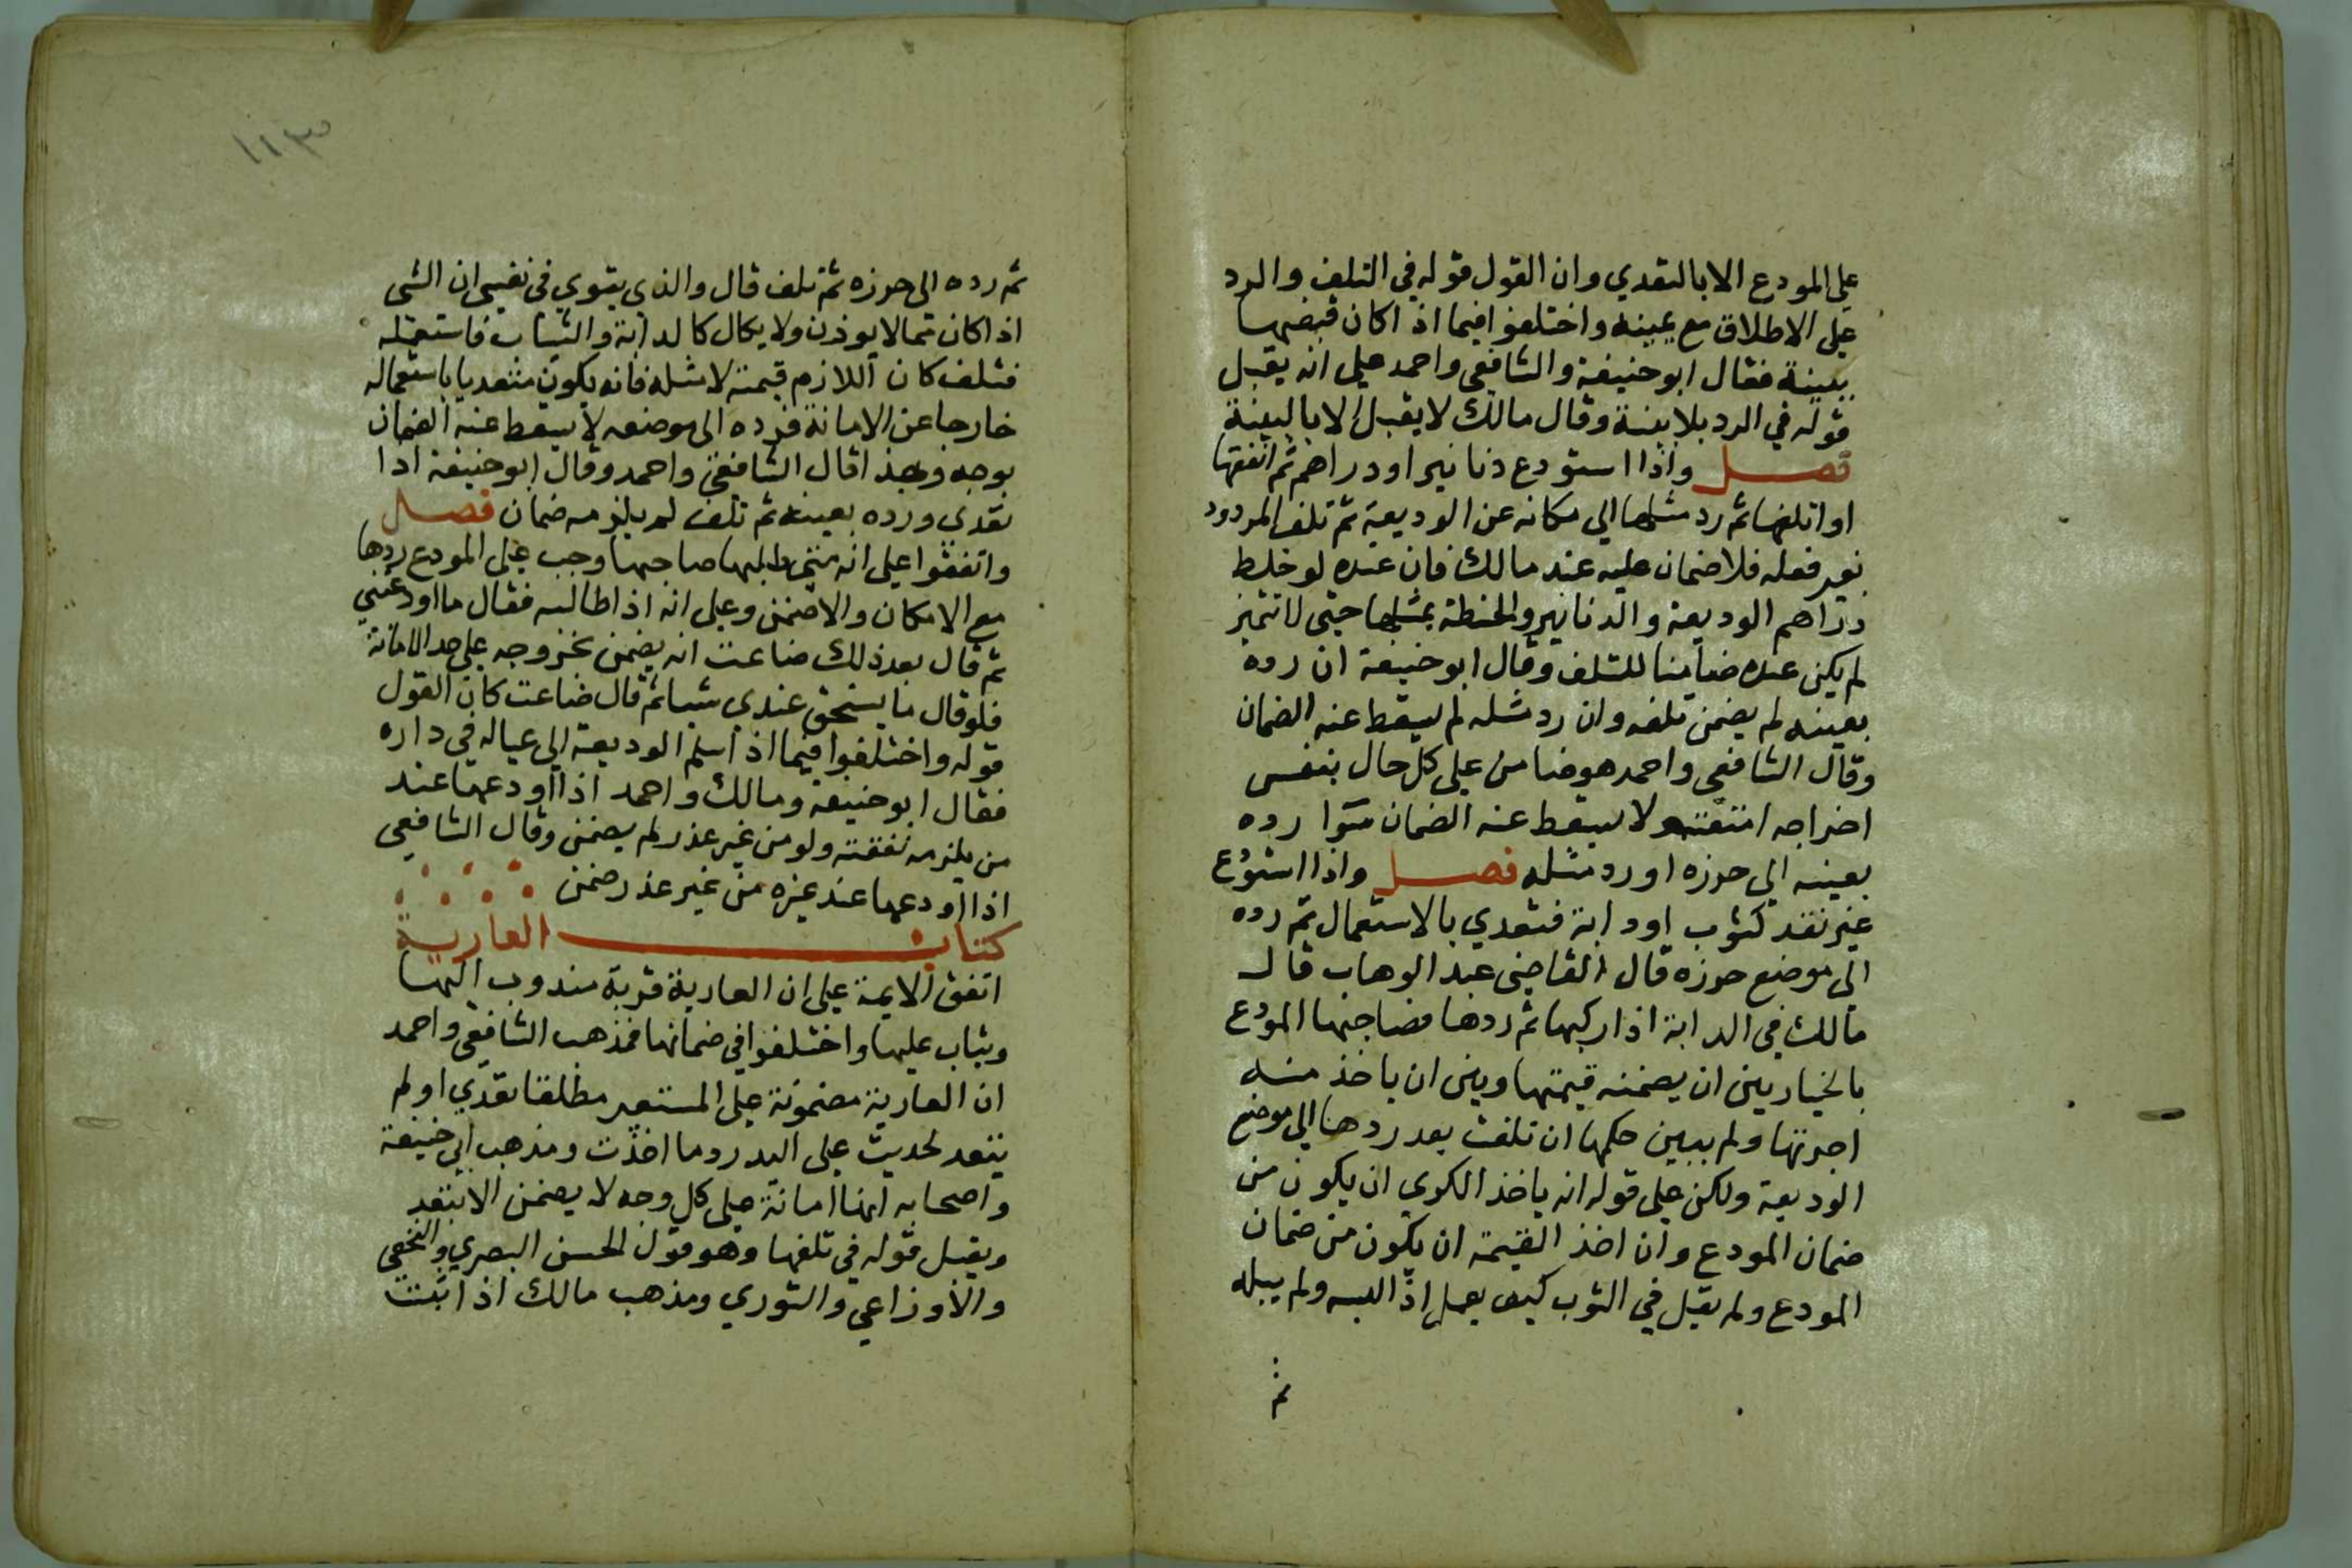 على المودع الا بالتعدي وان القول قوله في التلف والرد
على الاطلاق مع يمينه واختلفوا فيما اذا كان قبضها
ببينة فقال ابو حنيفة والشافعي واحمد على انه يقبل
قوله في الرد بلا بينة وقال مالك لا يقبل الا بالبينة
فصل واذا استودع دنانير او دراهم ثم انفقها
او اتلفها ثم رد مثلها الي مكانه عن الوديعة ثم تلف المردود
بغير فعله فلا ضمان عليه عند مالك فان عنده لو خلط
دراهم الوديعة والدنانير والحنطة بمثلها حتى لا تتميز
لم يكن عنده ضامنا للتلف وقال ابو حنيفة ان رده
بعينه لم يضمن تلفه وان رد مثله لم يسقط عنه الضمان
وقال الشافعي واحمد هو ضامن على كل حال بنفس
اخراجه لا يسقط عنه الضمان سوا رده
بعينه الي حرزه او رد مثله فصل واذا استودع
غير نقد كثوب او دابة فتعدي بالاستعمال ثم رده
الى موضع حرزه قال القاضي عبد الوهاب قال
مالك في الدابة اذا ركبها ثم ردها فصاحبها المودع
بالخيار بين ان يضمنه قيمتها وبين ان ياخذ منه
اجرتها ولم يبين حكمها ان تلفت بعد ردها الي موضع
الوديعة ولكن على قوله انه ياخذ الكري ان يكون من
ضمان المودع وان اخذ القيمة ان يكون من ضمان
المودع ولم يقل في الثوب كيف يعمل اذا لبسه ولم يبله
ثم
١١٣
ثم رده الى حرزه ثم تلف قال والذي يقوي في نفسي ان الشى
اذا كان مما لا يوزن ولا يكال كالدابة والثياب فاستعمله
فتلف كان اللازم قيمته لا مثله فانه يكون متعديا باستعماله
خارجا عن الامانة فرده الى موضعه لا يسقط عنه الضمان
بوجه وبهذا قال الشافعي واحمد وقال ابو حنيفة اذا
تعدي ورده بعينه ثم تلف لم يلزمه ضمان فصل
واتفقوا على انه متى طلبها صاحبها وجب على المودع ردها
مع الامكان والا ضمن وعلى انه اذا طالبه فقال ما اودعتني
ثم قال بعد ذلك ضاعت انه يضمن بخروجه على حد الامانة
فلو قال ما يستحق عندي شيا ثم قال ضاعت كان القول
قوله واختلفوا فيما اذا سلم الوديعة الي عياله في داره
فقال ابو حنيفة ومالك واحمد اذا اودعها عند
من يلزمه نفقته ولو من غير عذر لم يضمن وقال الشافعي
اذا اودعها عند غيره من غير عذر ضمن
كتاب العارية
اتفق الايمة على ان العارية قربة مندوب اليها
ويثاب عليها واختلفوا في ضمانها فمذهب الشافعي واحمد
ان العارية مضمونة على المستعير مطلقا تعدي او لم
يتعد لحديث على اليد رد ما اخذت ومذهب ابي حنيفة
واصحابه انها امانة على كل وجه لا يضمن الا بتعد
ويقبل قوله في تلفها وهو قول الحسن البصري والنخعي
والاوزاعي والثوري ومذهب مالك اذا ثبت